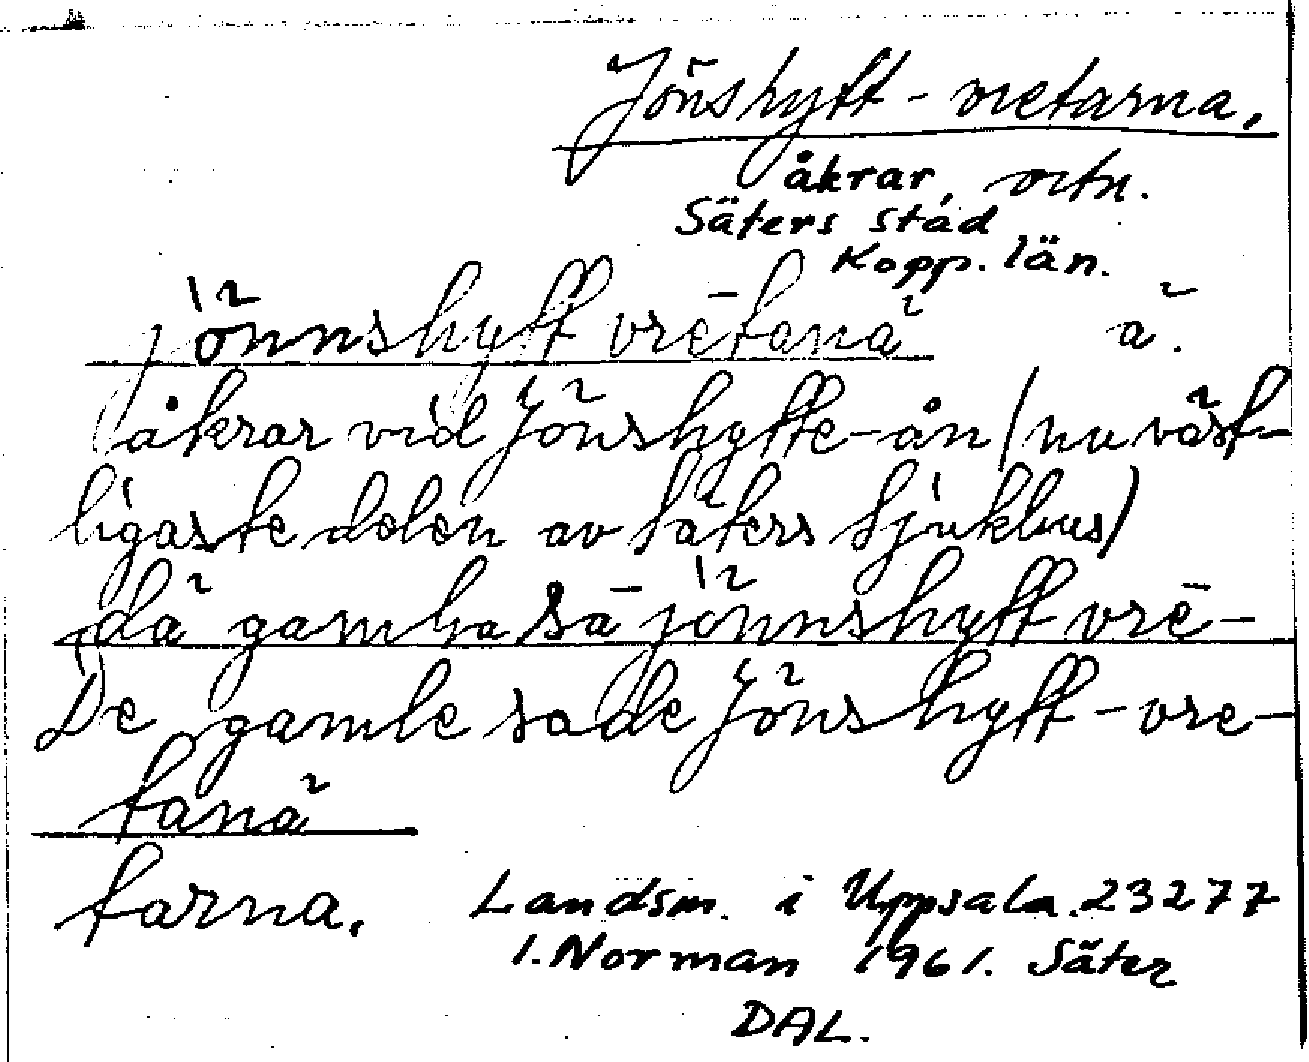 Jönshytt-vretarna,
åkrar, vctn.
Säters stad
Kopp. län.
jönnshytt vrētanä ä.
åkrar vid Jönshytte-ån (nu väst-
ligaste delen av Säters Sjukhus)
dä gamba sā jönnshytt vrē-
De gamle sade Jönshytt-vre-
tanä
tarna.
Landsm. i Uppsala. 23277
I. Norman 1961. Säter
DAL.